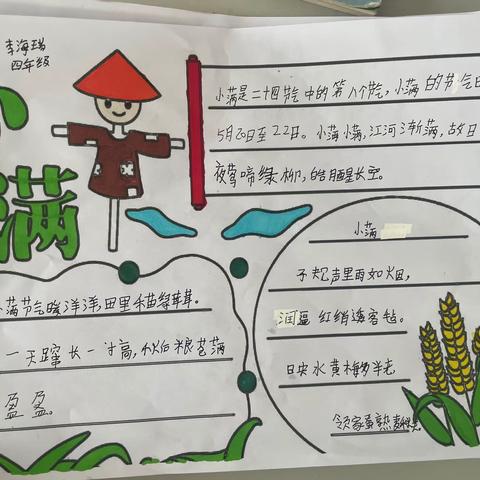 李海瑞
四年级
小满
小满是二十四节气中的第八个节气，小满的节气日
5月20日至22日。小满小满，江河渐满，故曰
夜莺啼绿柳，皓月醒长空。
小满
子规声里雨如烟，
润逼红绡透客毡。
映水黄梅多半老，
邻家蚕熟麦
小满节气暖洋洋，田里禾苗绿茸茸。
一天蹿长一寸高，秋后粮仓满
盈盈。